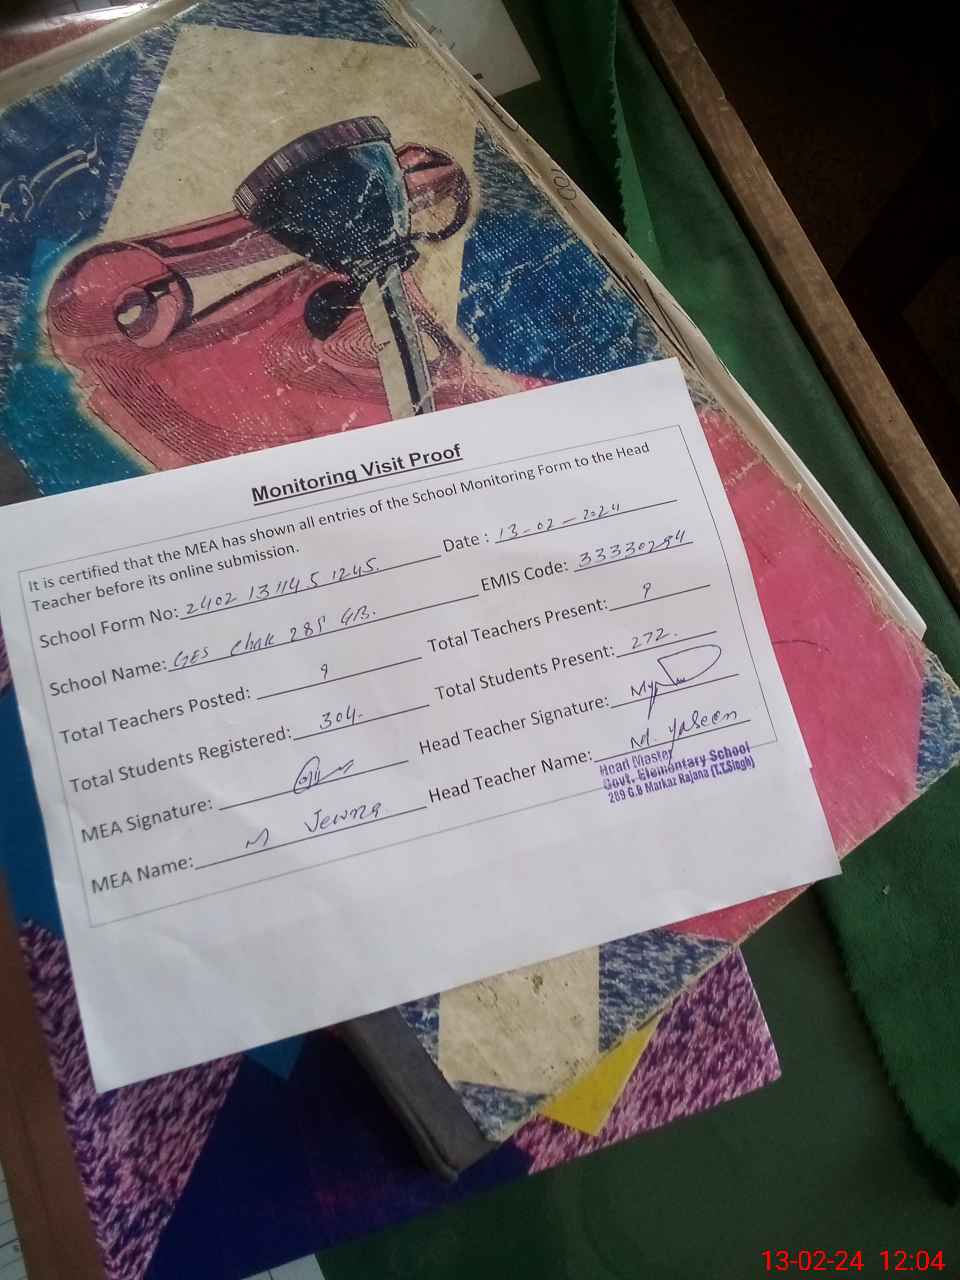 Monitoring Visit Proof
It is certified that the MEA has shown all entries of the School Monitoring Form to the Head
Teacher before its online submission.
School Form No: 2402 131145 1245. Date : 13-02-2024
School Name: GES Chak 285 GB. EMIS Code: 33330294
Total Teachers Posted: 9 Total Teachers Present: 9
Total Students Registered: 304. Total Students Present: 272.
MEA Signature: Head Teacher Signature:
MEA Name: M Head Teacher Name: M. Yaseen
Head Master
Govt. Elementary School
289 G.B Markaz Rajana (T.T.Singh)
13-02-24 12:04